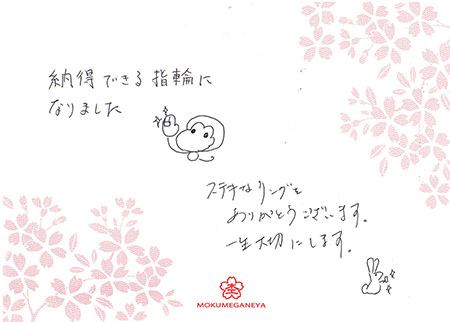 納得できる指輪に
なりました
ステキなリングを
ありがとうございます。
一生大切にします。
MOKUMEGANEYA